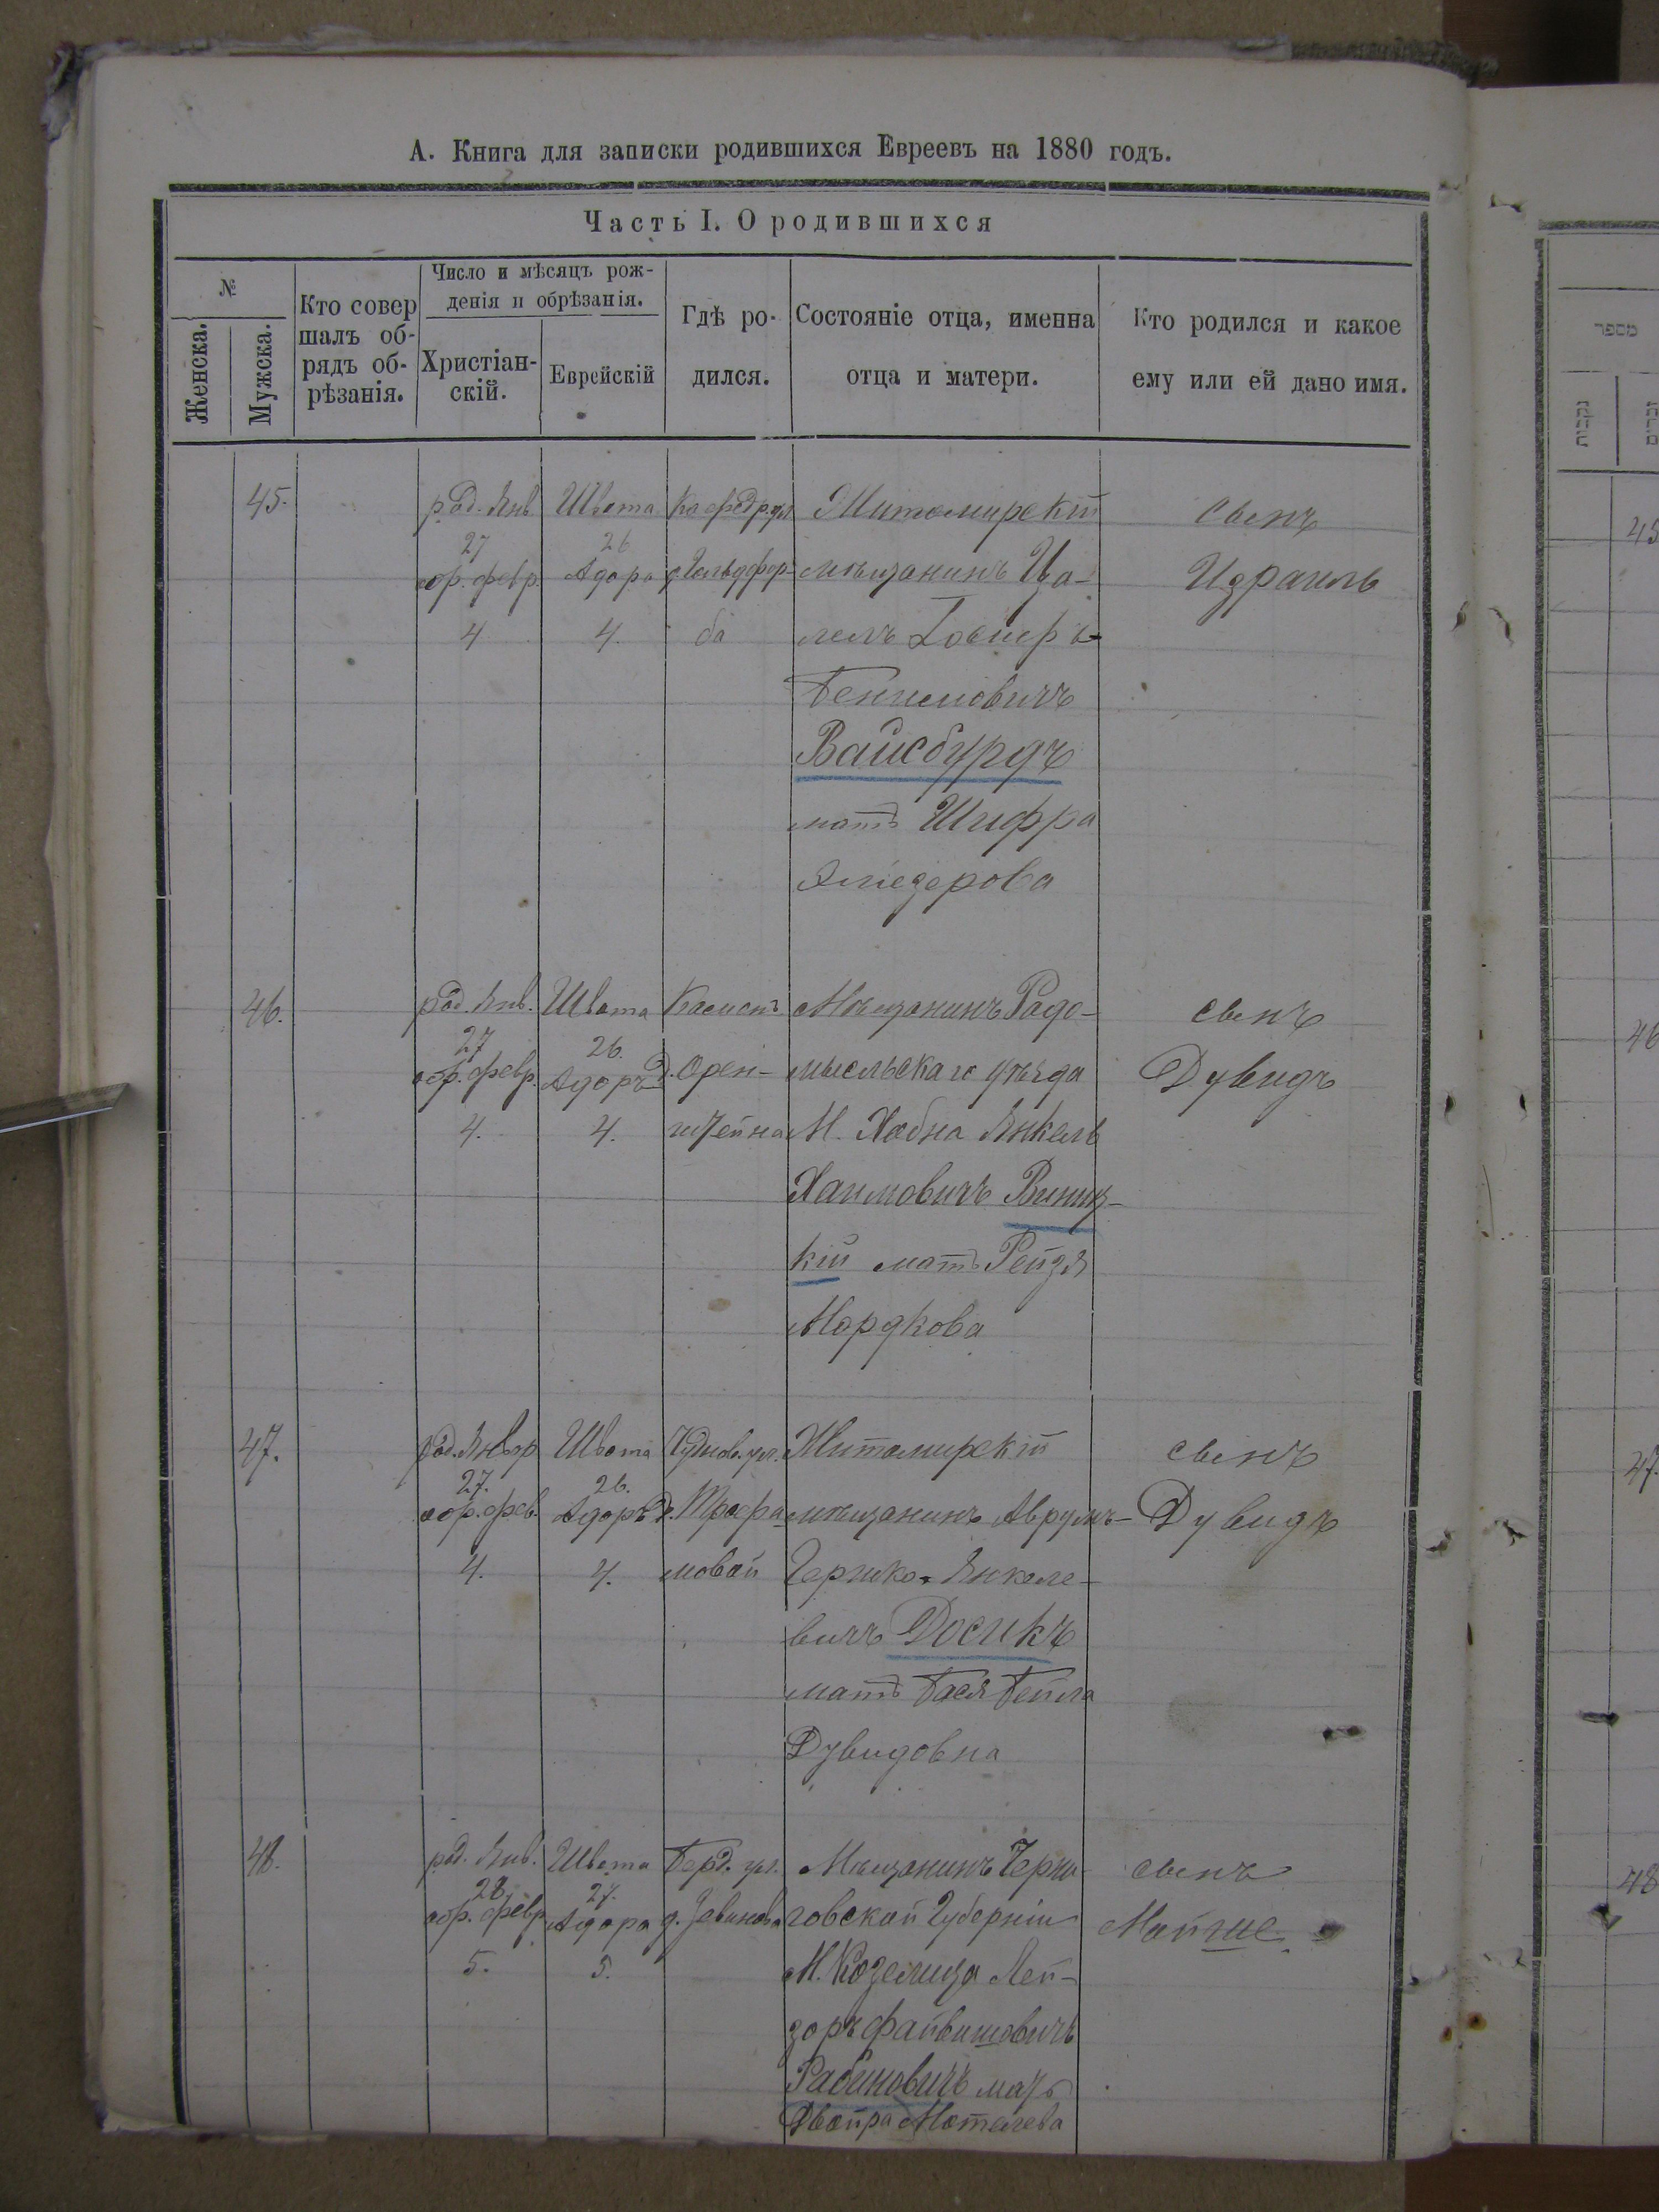 А. Книга для записки родившихся Евреевъ на 1880 годъ.
Часть I. О родившихся
№
Женска.
Мужска.
Кто совер
шалъ об-
рядъ об-
рѣзанія.
Число и мѣсяцъ рож-
денія и обрѣзанія.
Христіан-
скій.
Еврейскій
Гдѣ ро-
дился.
Состояніе отца, именна
отца и матери.
Кто родился и какое
ему или ей дано имя.
45.
род. Янв
27
обр. февр.
4
Швата
26
Адара
4.
Кафедр. ул
ба
Житомирскій
мѣщанинъ Ца-
лель
Вайсбурдъ
мать Шифра
сынъ
Израиль
46.
род. Янв.
27
обр. февр.
4.
Швата
26.
Адаръ
4.
д. Орен-
штейна
Мѣщанинъ Радо-
мысльскаго уѣзда
М. Хабна Янкель
Хаимовичъ Виниц-
кій мать Рейзя
Мордкова
сынъ
Дувидъ
47.
род. Январ
27.
обр. фев.
4.
Швата
26.
Адаръ
4.
Чуднов. ул.
мовой
Житомирскій
мѣщанинъ Аврумъ-
Гершко-Янкеле-
вичъ Досикъ
мать Бася Бейла
Дувидовна
сынъ
Дувидъ
48.
род. Янв.
28.
обр. февр
5.
Швата
27.
Адара
5.
Берд. ул.
Мѣщанинъ Черни-
говской Губерніи
М. Козелица Лей-
зоръ Файвишовичъ
Рабиновичъ мать
Двойра Мотелева
сынъ
Мойше
מספר
נקבות
זכרים
45
46
47.
48